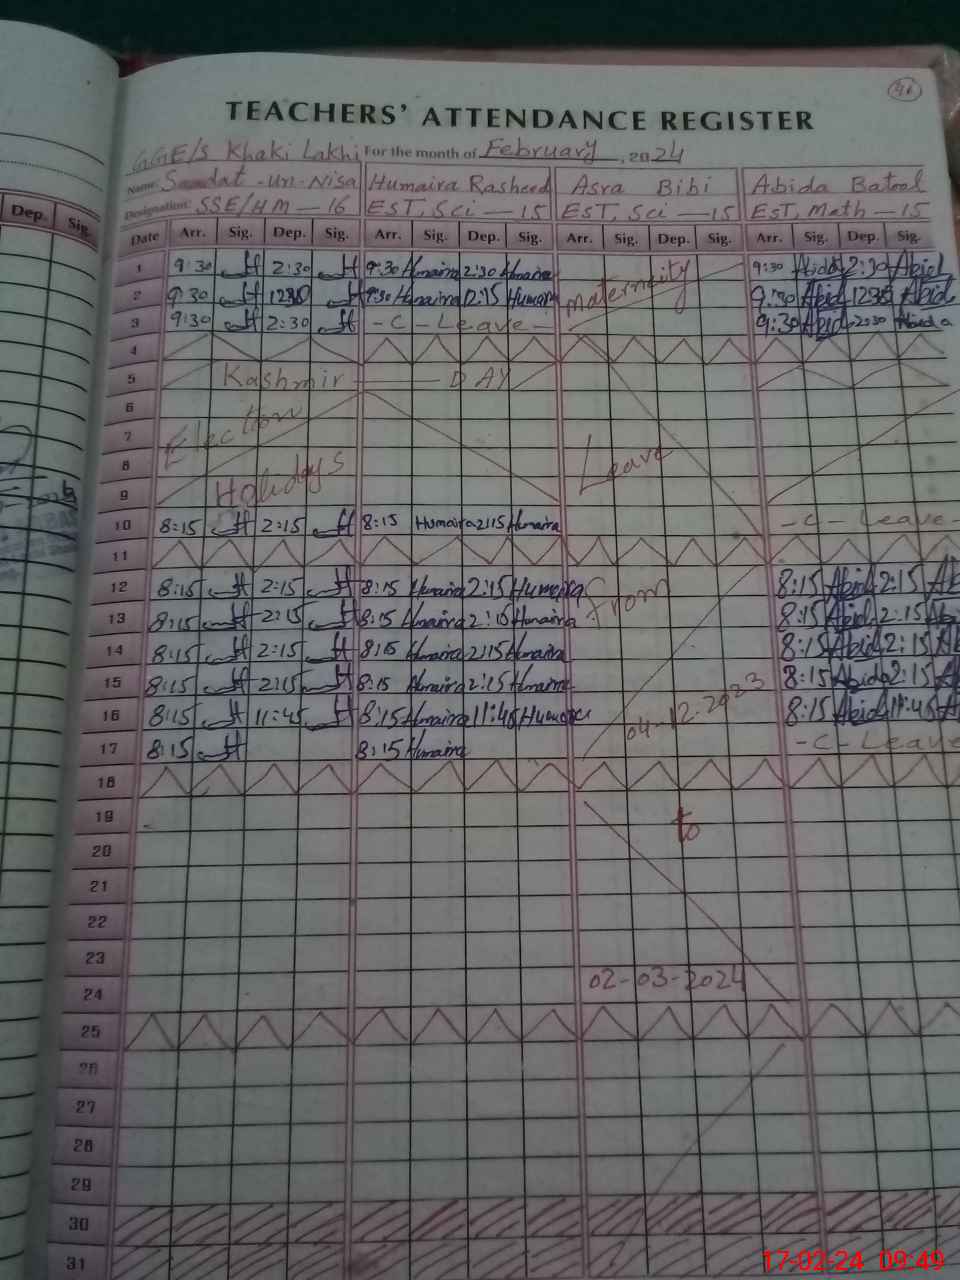 46
TEACHERS' ATTENDANCE REGISTER
GGE/S Khaki Lakhi For the month of February, 2024
Name: Saadat-un-Nisa Humaira Rasheed Asra Bibi Abida Batool
Designation: SSE/HM-16 EST, Sci-15 EST, Sci-15 EST, Math-15
Dep. Sig. Date Arr. Sig. Dep. Sig. Arr. Sig. Dep. Sig. Arr. Sig. Dep. Sig. Arr. Sig. Dep. Sig.
1 9:30 2:30 9:30 Humaira 2:30 Humaira maternity 9:30 Abida 2:30 Abid
2 9:30 1230 9:30 Humaira 12:15 Humair 9:30 Abid 1230 Abid
3 9:30 2:30 -C-Leave- 9:30 Abid 2030 Abida
4
5 Kashmir DAY
6 Election
7
8 Holidays Leave
9
10 8:15 2:15 8:15 Humaira 2:15 Humaira -C-Leave-
11
12 8:15 2:15 8:15 Humaira 2:15 Humaira From 8:15 Abid 2:15 Ab
13 8:15 2:15 8:15 Humaira 2:15 Humaira 8:15 Abid 2:15 Abi
14 8:15 2:15 8:15 Humaira 2:15 Humaira 8:15 Abid 2:15 Ab
15 8:15 2:15 8:15 Humaira 2:15 Humaira 8:15 Abida 2:15 Ab
16 8:15 11:45 8:15 Humaira 11:45 Humaira 04-12-2023 8:15 Abid 11:45 A
17 8:15 8:15 Humaira -C-Leave
18
19 to
20
21
22
23
24 02-03-2024
25
26
27
28
29
30
31
17-02-24 09:49